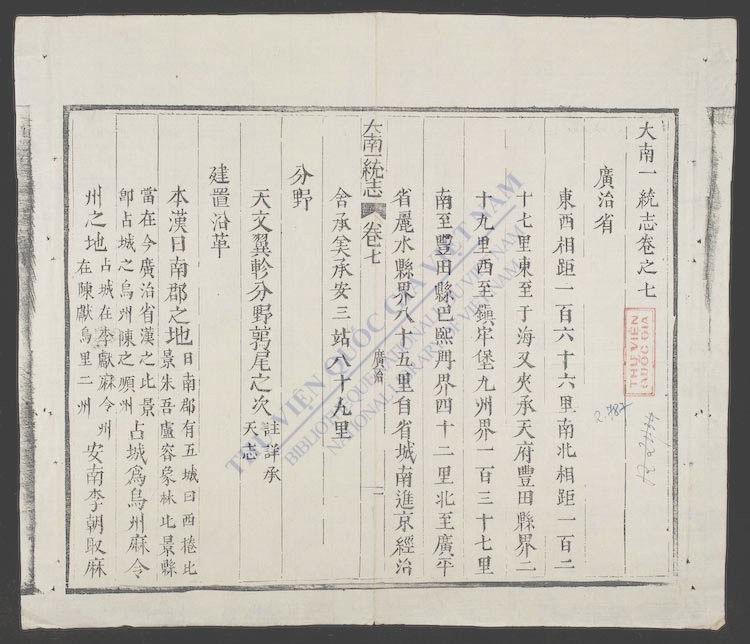 大南一統志卷之七
廣治省
東西相距一百六十六里南北相距一百二
十七里東至于海又夾承天府豐田縣界二
十九里西至鎮牢堡九州界一百三十七里
南至豐田縣巴熙門界四十二里北至廣平
省麗水縣界八十五里自省城南進京經治
大南一統志 卷七 廣治 一
舍承美承安三站八十九里
分野
天文翼軫分野鶉尾之次 註詳承
天志
建置沿革
本漢日南郡之地 日南郡有五城曰西捲比
景朱吾盧容象林比景縣
當在今廣治省漢之比景
即占城之烏州陳之順州 占城為烏州麻令
州之地 占城在李獻麻令州
在陳獻烏里二州 安南李朝取麻
THƯ VIỆN QUỐC GIA VIỆT NAM
BIBLIOTHÈQUE NATIONALE DU VIETNAM
NATIONAL LIBRARY OF VIETNAM
THƯ VIỆN
QUỐC GIA